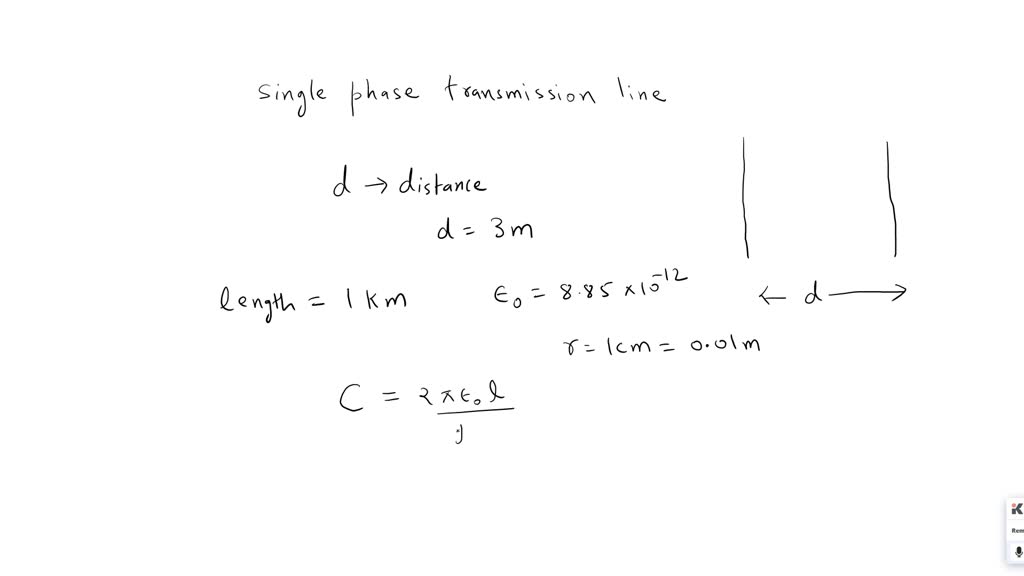 single phase transmission line
d → distance
d = 3m
length = 1 km
ϵ₀ = 8.85 × 10⁻¹²
← d →
r = 1cm = 0.01m
C = 2πϵ₀l
K
Rem